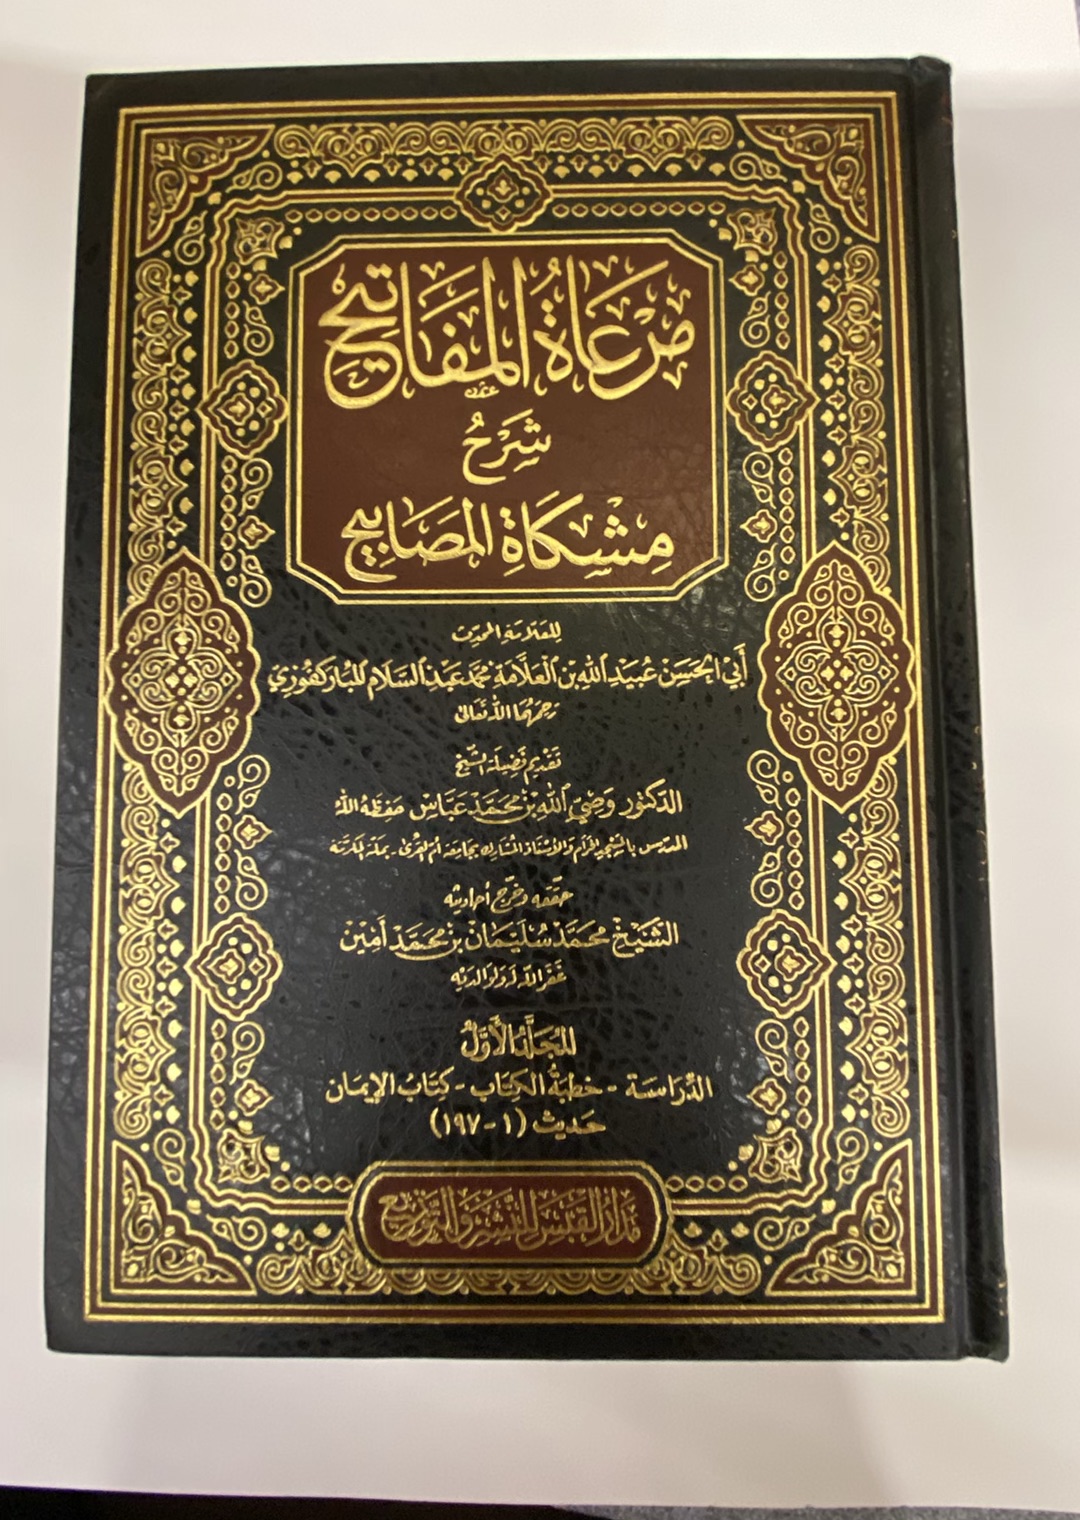 مَرْعَاةُ المَفَاتِيْحِ
شَرْحُ
مِشْكَاةِ المَصَابِيْحِ
للعلامة المحدث
أَبِي الحَسَن عُبَيد الله بن العَلَّامَة محمد عَبد السَّلام المُباركفوري
رحمهما الله تعالى
تقديم فضيلة الشيخ
الدكتور وَصِيّ الله بن محمد عَبَّاس حفظه الله
المدرس بالمسجد الحرام والأستاذ المشارك بجامعة أم القرى - بمكة المكرمة
حققه وخرج أحاديثه
الشَّيْخ محمد سُلَيمان بن محمد أمين
غفر الله له ولوالديه
المُجَلَّدُ الأَوَّلُ
الدِّرَاسَة - خُطبَةُ الكِتَاب - كِتَابُ الإيمَان
حَديث (١-١٩٧)
دَارُ القَبَس لِلنَّشْرِ وَالتَّوْزِيع